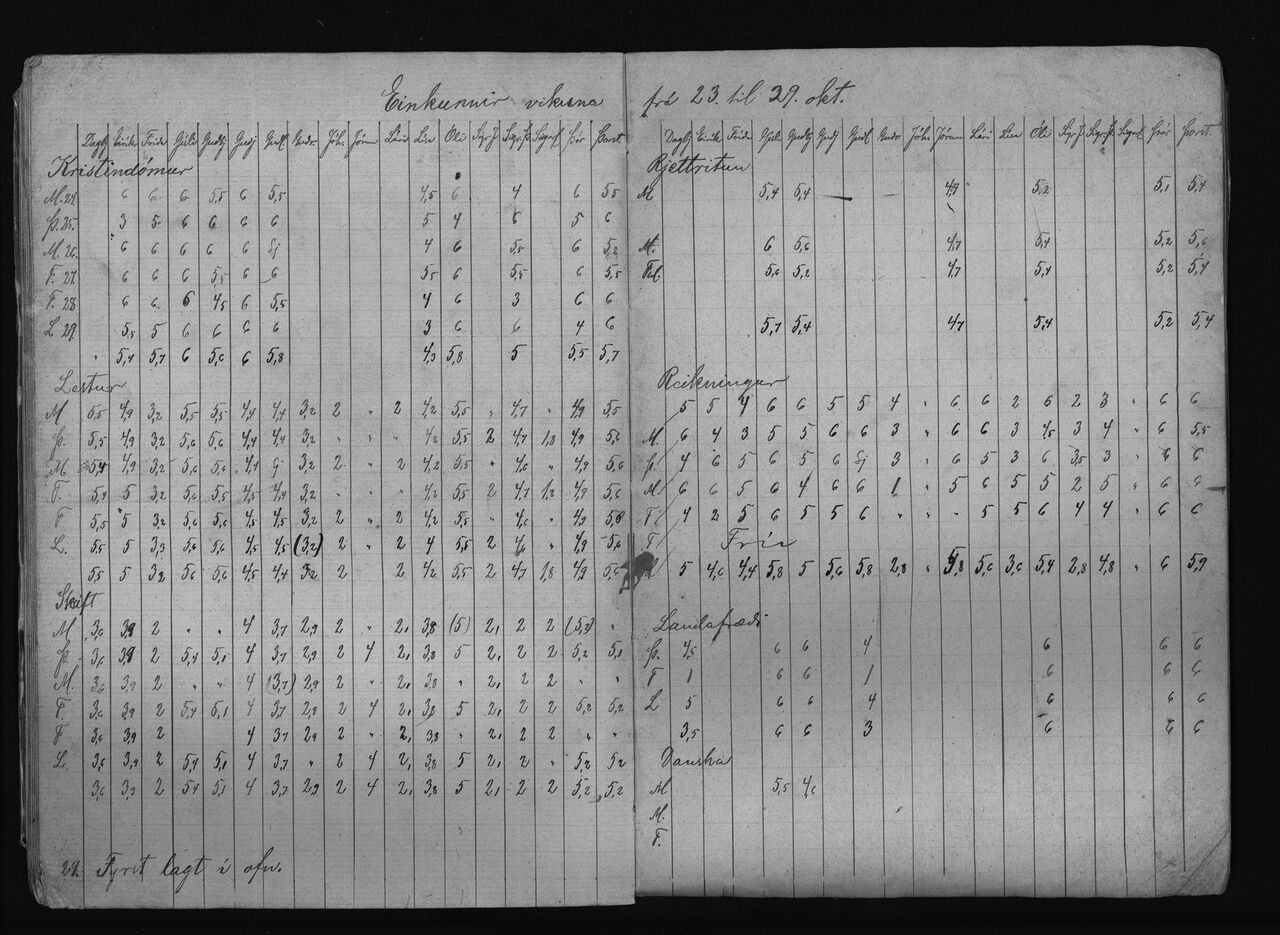 Einkunnir vikuna
Dagbj Eirik Fríða Guðl Guðbj Guðj Guðl Guðr Jóh Jórun Lári Lín Óli Sigr Sigr.St. Sigrf Þór Þorst.
Kristindómur
M. 24 6 6 6 5,5 6 5,5 4,5 6 4 6 5,5
Þ. 25. 3 5 6 6 6 6 5 4 6 5 6
M. 26. 6 6 6 6 6 Sj 4 6 5,5 6 5,2
F. 27. 6 6 6 5,5 6 6 5,5 6 5,5 6 5,5
F. 28 6 6 6 4,5 6 5,5 4 6 3 6 6
L 29. 5,5 5 6 6 6 6 3 6 6 4 6
" 5,4 5,7 6 5,6 6 5,8 4,3 5,8 5 5,5 5,7
Lestur
M 5,5 4,9 3,2 5,5 5,5 4,4 4,4 3,2 2 " 2 4,2 5,5 " 4,7 " 4,9 5,5
Þ. 5,5 4,9 3,2 5,6 5,6 4,4 4,4 3,2 " " " 4,2 5,5 2 4,7 1,8 4,9 5,6
M. 5,4 4,9 3,2 5,6 5,6 4,4 Sj 3,2 2 " 2 4,2 5,5 " 4,6 " 4,9 5,6
F. 5,4 5 3,2 5,6 5,5 4,5 4,4 3,2 " " " 4,2 5,5 2 4,7 1,2 4,9 5,6
F 5,5 5 3,2 5,6 5,6 4,5 4,5 3,2 2 " 2 4,2 5,5 " 4,6 " 4,9 5,6
L. 5,5 5 3,3 5,6 5,6 4,5 4,5 (3,2) 2 " 2 4 5,5 2 4,6 " 4,9 5,6
5,5 5 3,2 5,6 5,6 4,5 4,4 3,2 2 2 4,2 5,5 2 4,7 1,8 4,9 5,6
Skrift
M 3,6 3,9 2 " " 4 3,7 2,9 2 " 2, 3,8 (5) 2, 2 2 (5,3) "
Þ. 3,6 3,9 2 5,4 5,1 4 3,7 2,9 2 4 2, 3,8 5 2, 2 2 5,2 5,1
M. 3,6 3,9 2 " " 4 (3,7) 2,9 2 " 2, 3,8 " 2, 2 2 " "
F. 3,6 3,9 2 5,4 5,1 4 3,7 2,9 2 4 2, 3,8 5 2, 2 2 5,2 5,2
F 3,6 3,9 2 4 3,7 2,9 2 " 2, 3,8 " 2, 2 2 " "
L. 3,6 3,9 2 5,4 5,1 4 3,7 " 2 4 2, 3,8 5 2, 2 " 5,2 5,2
3,6 3,9 2 5,4 5,1 4 3,7 2,9 2 4 2, 3,8 5 2, 2 2 5,2 5,2
29. Fyrst lagt í ofn.
frá 23. til 29. okt.
Dagbj Eirik Fríða Guðl Guðbj Guðj Guðl Guðr Jóh Jórun Lári Lín Óli Sigr Sigr.St. Sigrf Þór Þorst.
Rjettritun
M 5,4 5,4 — — 4,7 5,2 5,1 5,4
M. 6 5,6 4,7 5,4 5,2 5,6
5,6 5,2 4,7 5,4 5,2 5,4
5,7 5,4 4,7 5,4 5,2 5,4
Reikningur
5 5 4 6 6 5 5 4 " 6 6 2 6 2 3 " 6 6
M. 6 4 3 5 5 6 6 3 " 6 6 3 4,5 3 4 " 6 5,5
Þ. 4 6 5 6 5 6 Sj 3 " 6 5 3 6 3,5 3 " 6 6
M 6 6 5 6 4 6 6 1 " 5 6 5 5 2 5 " 6 6
F. 4 2 5 6 5 5 6 " " " 5 5 6 4 4 " 6 6
F Frí
L 5 4,6 4,4 5,8 5 5,6 5,8 2,8 " 5,8 5,6 3,6 5,4 2,8 4,8 " 6 5,9
Landafræði
Þ. 4,5 6 6 4 6 6 6
F 1 6 6 1 6 6 6
L 5 6 6 4 6 6 6
3,5 6 6 3 6 6 6
Danska
M 5,5 4,6
M.
F.